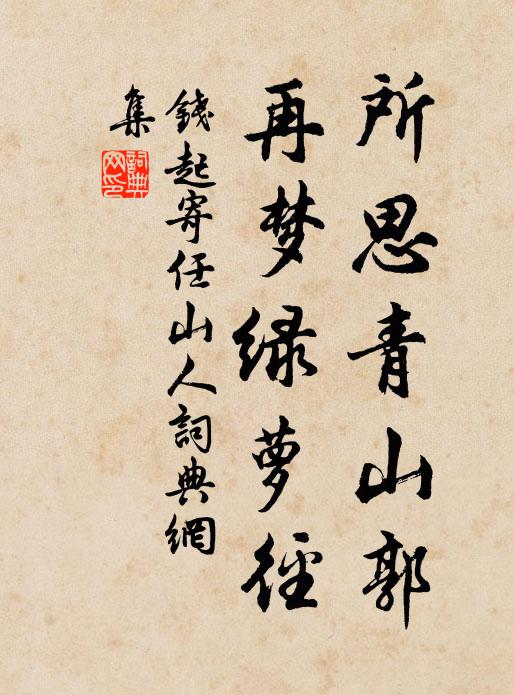 所思青山郭
再梦绿萝径
錢起寄任山人詞典網
集
詞典网印